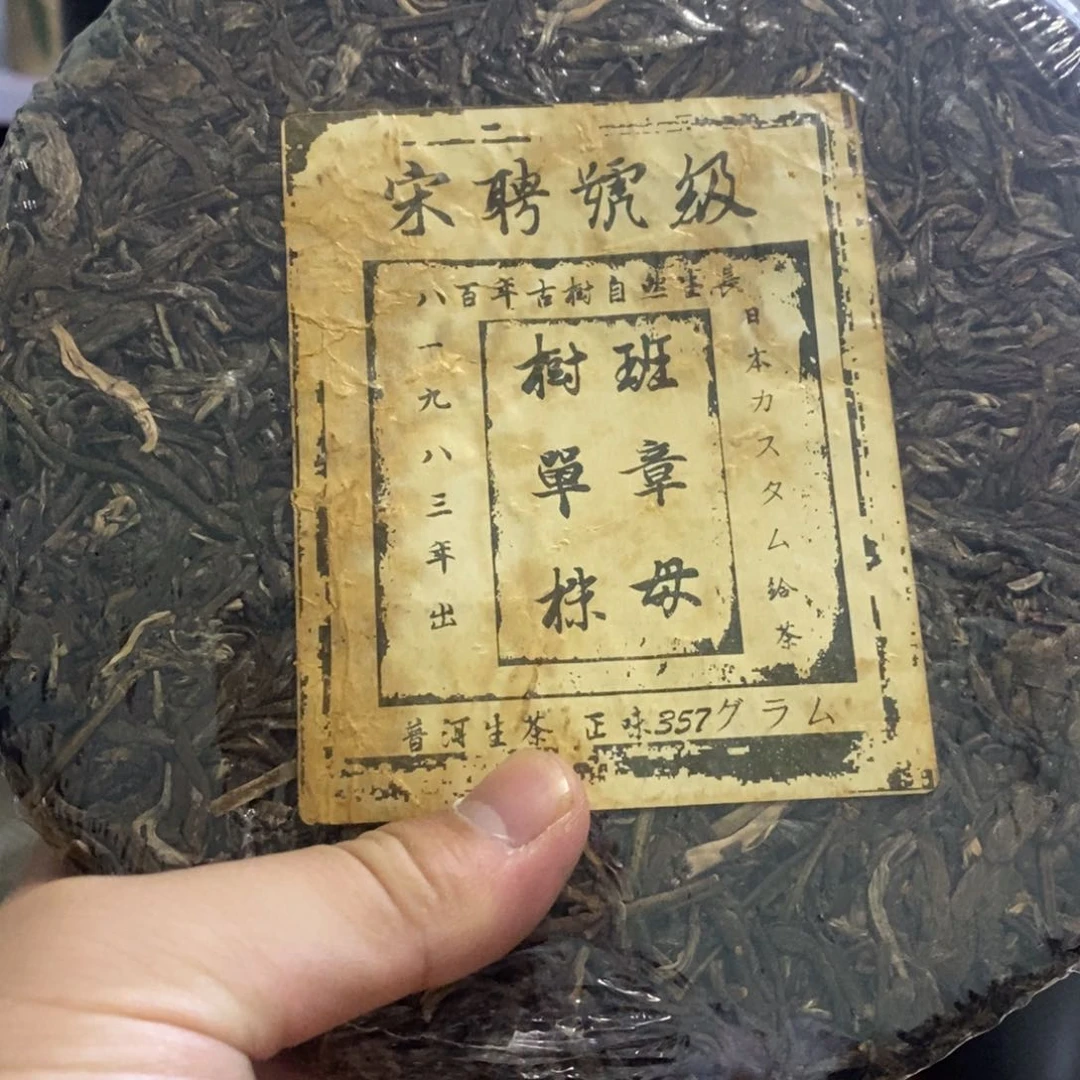 宋聘號級
八百年古樹自然生長
日本カスタム给茶
班章母
樹單株
一九八三年出
普洱生茶 正味357グラム